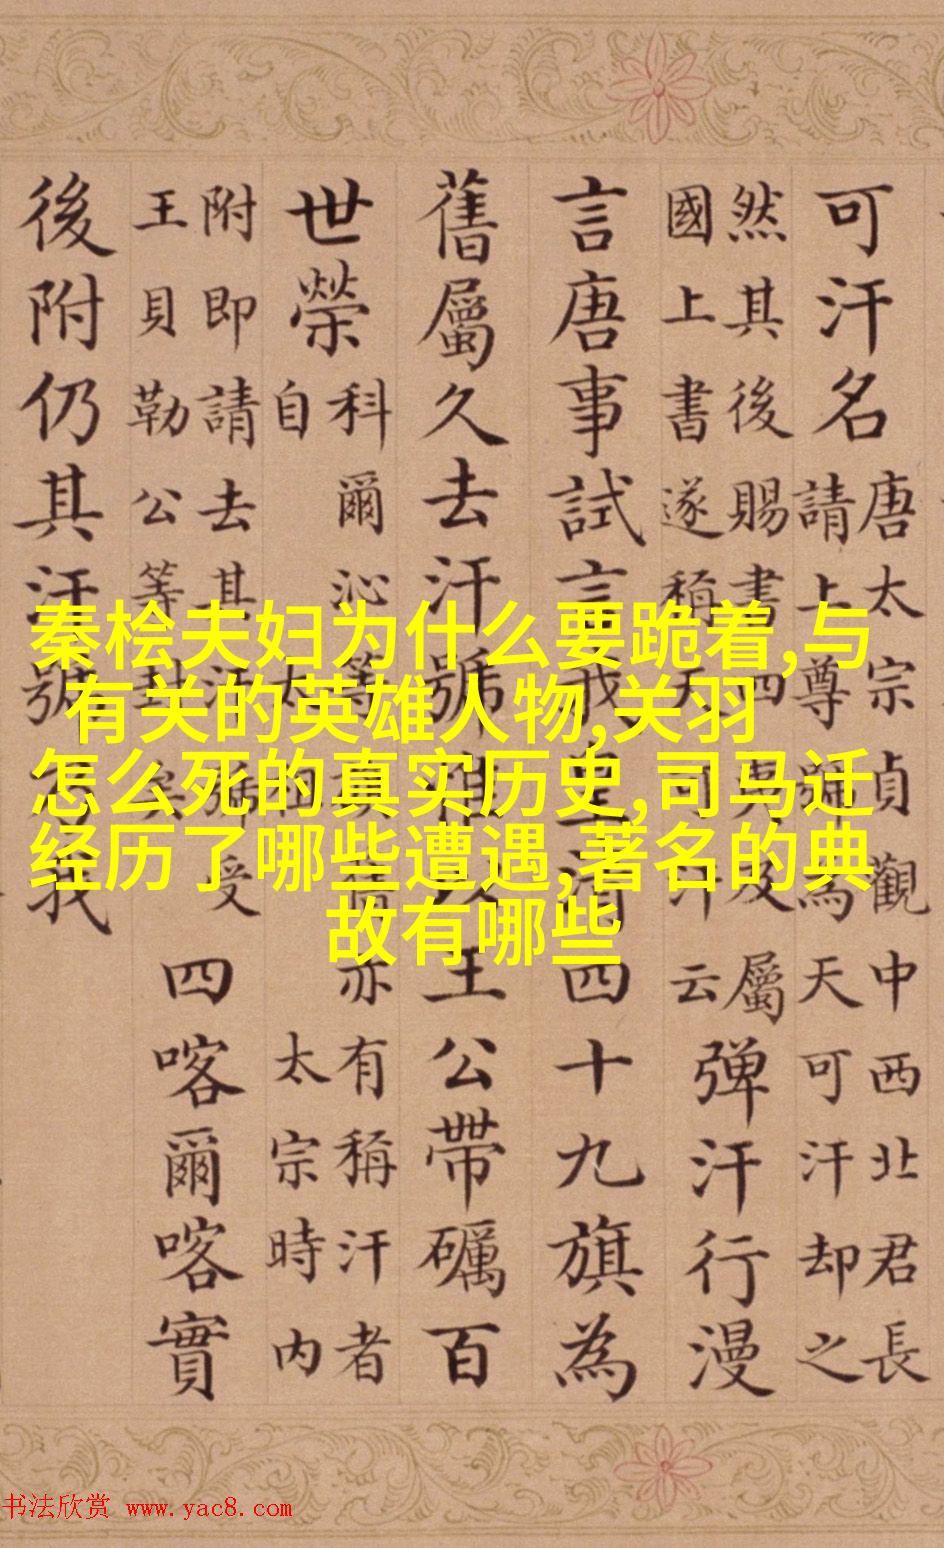 可汗名
唐太宗貞觀中西北君長
請上尊號為天可汗却之
然其後賜書四夷及屬
國上書遂稱天可汗云
彈汗行漫
言唐事試言我皇清四十九旗為
舊屬久去汗號以王公帶礪百
世榮
科爾沁等亦有稱汗者
自太祖太宗時內
附即請去其汗號受
王貝勒公等封矣
四喀爾喀實
後附仍其汗號我
秦桧夫妇为什么要跪着,与
有关的英雄人物,关羽
怎么死的真实历史,司马迁
经历了哪些遭遇,著名的典
故有哪些
书法欣赏 www.yac8.com